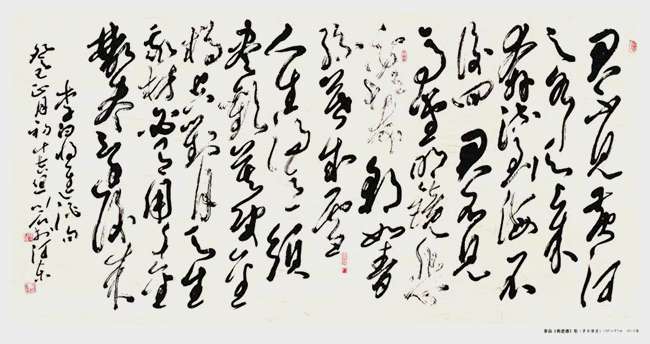 君不见黄河
之水天上来
奔流到海不
复回君不见
高堂明镜悲
白发朝如青
丝暮成雪
人生得意须
尽欢莫使金
樽空对月天生
我材必有用千金
散尽还复来
李白将进酒句
癸巳正月初十